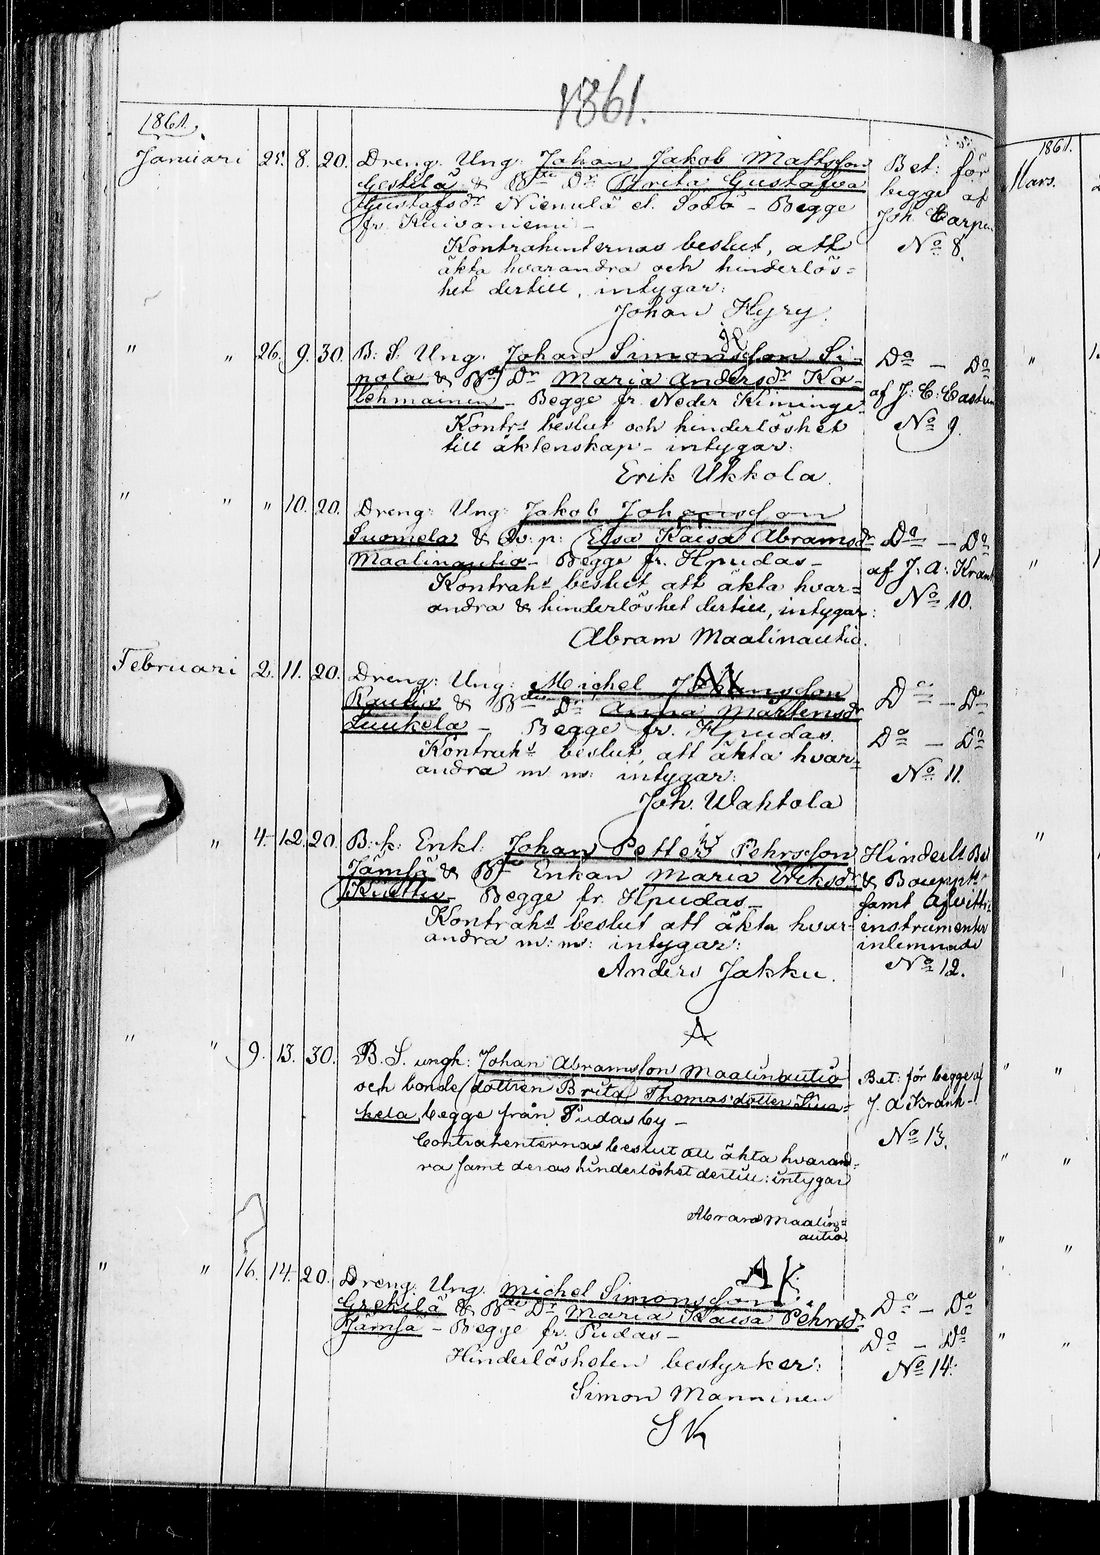 1861.
1861.
Januari 25. 8. 20. Dreng: Ung: Johan Jakob Mattsson
& Bde Dr Brita Gustafva
Gustafsdr Niemelä el. Sodo - Begge
fr. Kuivaniemi -
Kontrahenternas beslut, att
äkta hvarandra och hinderlös=
het dertill, intygar:
Johan Hyry.
Bet: för
begge af
Joh.
No 8.
" " 26. 9. 30. B: S. Ung. Johan Simonsson Si=
pola & Bd Dr Maria Andersdr Ko=
lehmainen - Begge fr. Neder Kiminge
Kontrs beslut och hinderlöshet
till äktenskap - intygar:
Erik Ukkola.
Do - Do
af J: E:
No 9.
" " " 10. 20. Dreng: Ung: Jakob Johansson
Suomela & Elsa Kaisa Abramsdr
Maalinautio - Begge fr. Hpudas -
Kontrahs beslut att äkta hvar=
andra & hinderlöshet dertill, intygar:
Abram Maalinautio.
Do - Do
af J: A: Krank
No 10.
Februari 2. 11. 20. Dreng: Ung: Michel Johansson
Rautio & Bde Dr Anna Mårtensdr
Liukela - Begge fr. Hpudas.
Kontrahs beslut, att äkta hvar=
andra m. m: intygar:
Joh. Wahtola
Do - Do
Do - Do
No 11.
" 4. 12. 20. B: k: Enkl: Johan Petter Pehrsson
Jämsä & Bde Enkan Maria Eriksdr
Kurttio - Begge fr. Hpudas -
Kontrahs beslut att äkta hvar=
andra m: m: intygar:
Anders Jakku.
Hinderl: Bet
& Bouppt:
samt Afvittr:
instrumenter
inlemnade
No 12.
A
" " 9. 13. 30. B. S. ungk: Johan Abramsson Maalinautio
och bondedottren Brita Thomasdotter Liua=
kela begge från Pudas by -
Contrahenternas beslut att äkta hvaran=
dra samt deras hinderlöshet dertill: intygar
Abram Maalin=
autio.
Bet: för begge af
J. A Krank -
No 13.
" " 16. 14. 20. Dreng: Ung: Michel Simonsson
AK
Grekelä & Bde Dr Maria Kaisa Pehrsdr
Jämsä - Begge fr. Pudas -
Hinderlösheten bestyrker:
Simon Manninen
SK
Do - Do
Do - Do
No 14.
1861.
Mars.